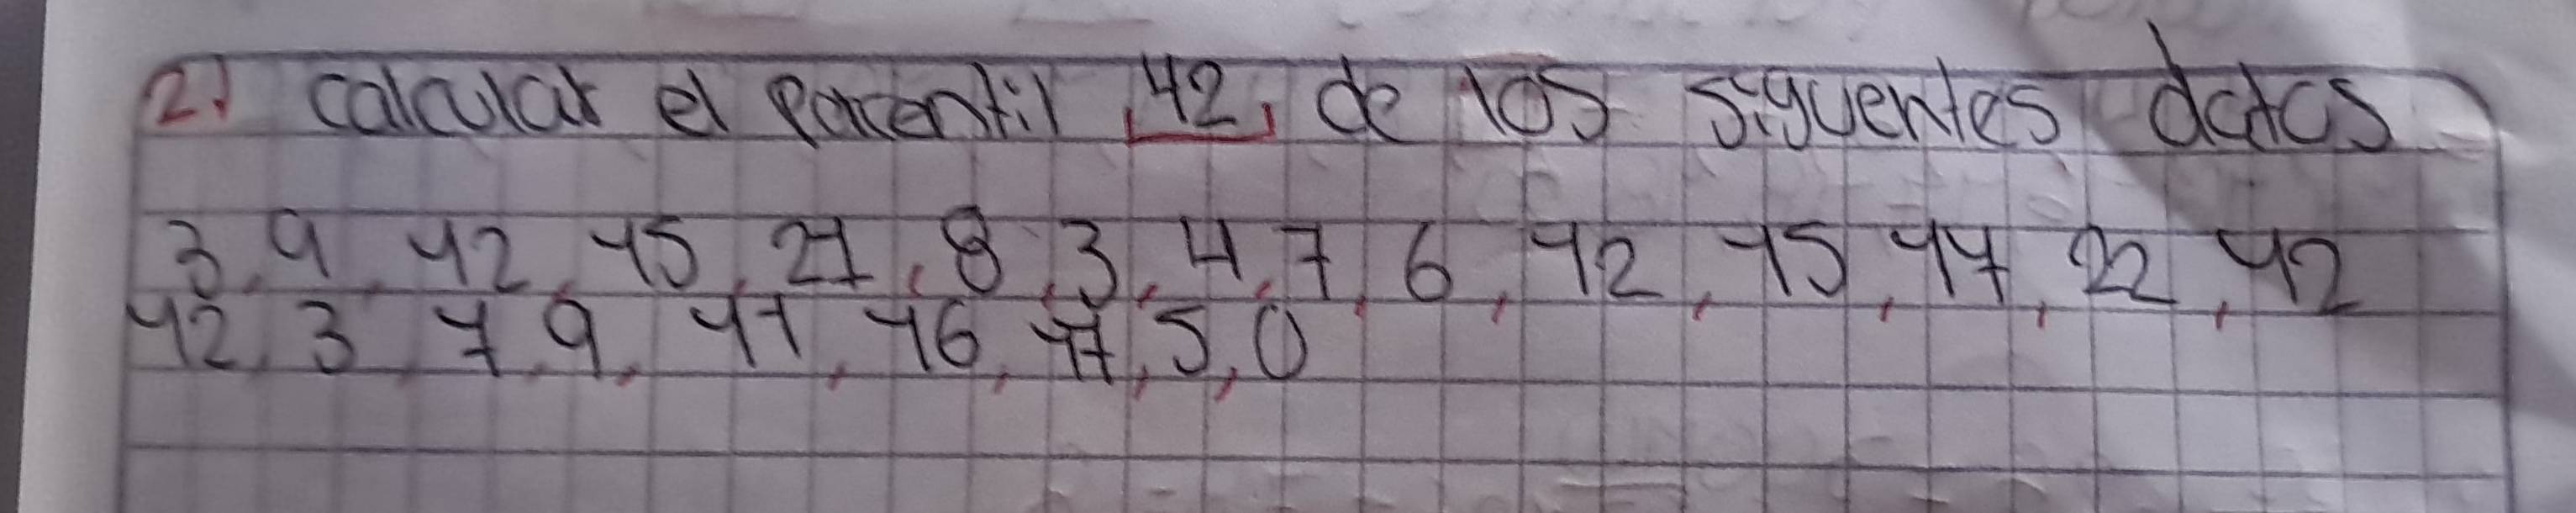 2. calcular el Parcentil 42 de los siguentes datos
3, 9, 42, 45, 21, 8, 3, 4, 7, 6, 42, 45, 47, 22, 42
42, 3, 7, 9, 41, 46, 47, 5, 0